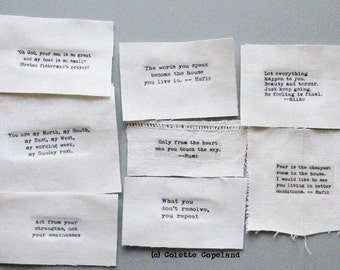 "Oh God, your sea is so great
and my boat is so small"
(Breton fisherman's prayer)
You are my North, my South,
my East, my West,
my working week,
my Sunday rest.
Act from your
strengths, not
your weaknesses
The words you speak
become the house
you live in. -- Hafiz
Only from the heart
can you touch the sky.
--Rumi
What you
don't resolve,
you repeat
Let everything
happen to you.
Beauty and terror.
Just keep going.
No feeling is final.
--Rilke
Fear is the cheapest
room in the house.
I would like to see
you living in better
conditions. -- Hafiz
(c) Colette Copeland